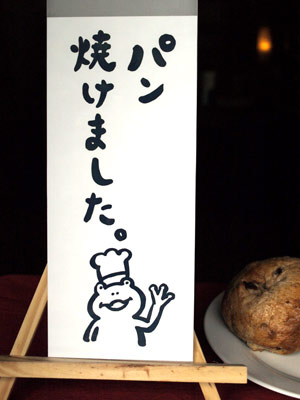 パン
焼けました。